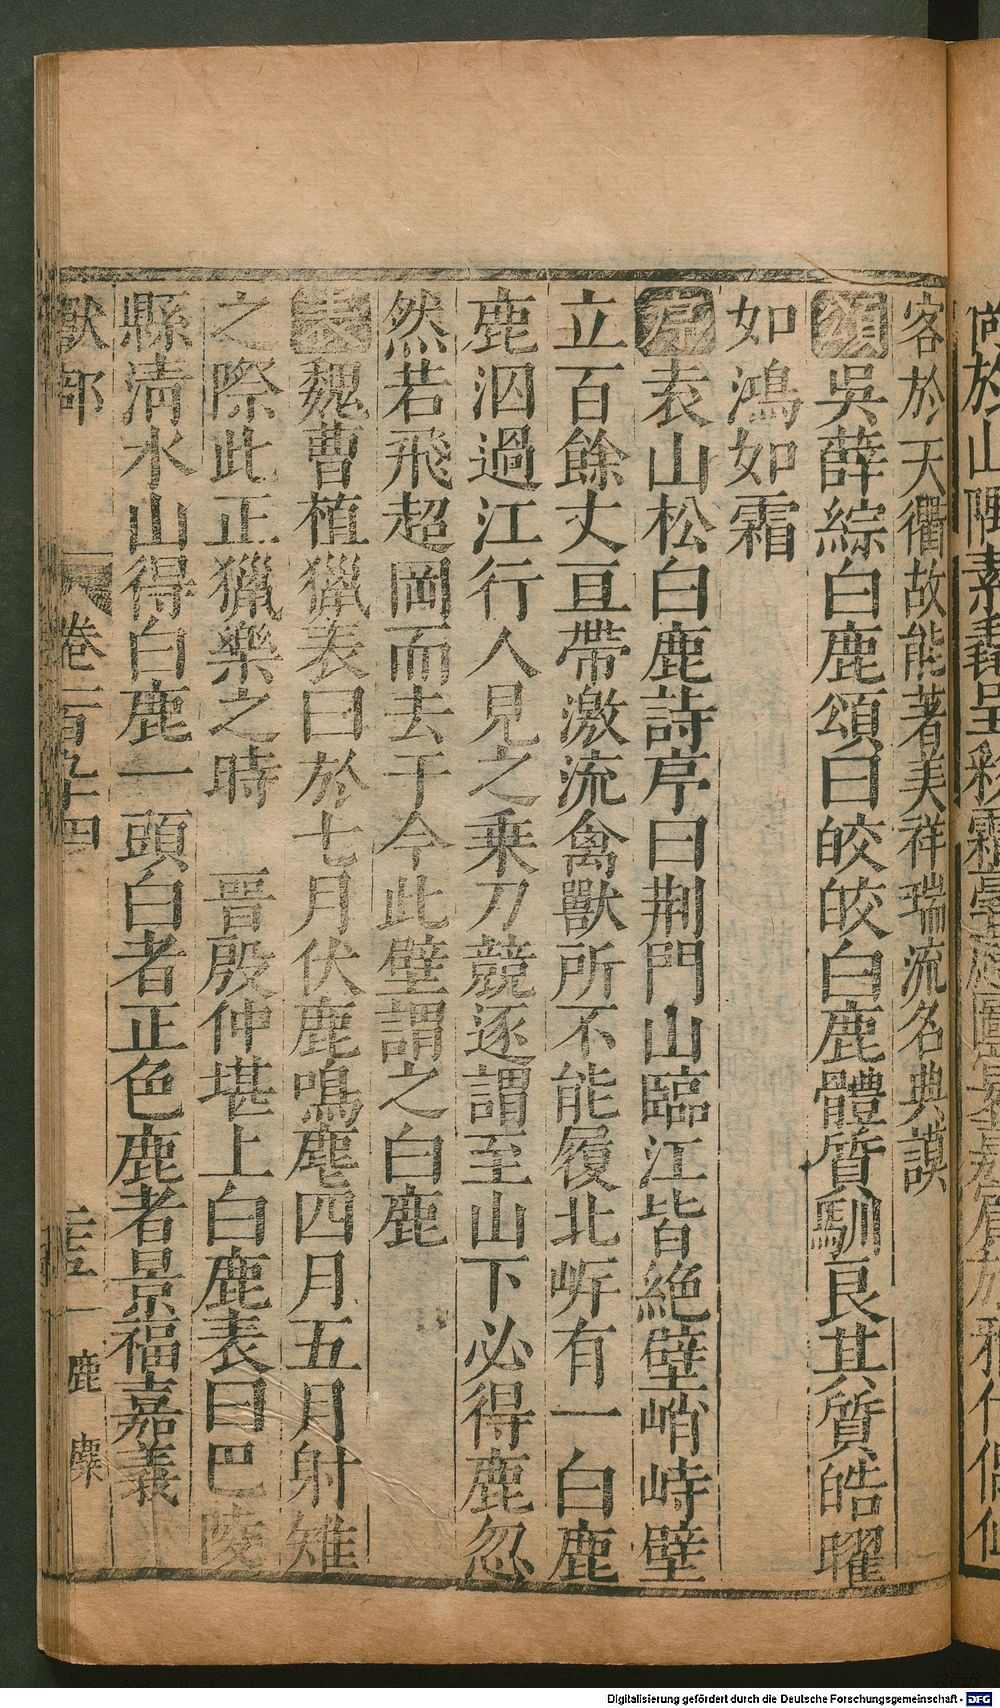 客於天衢故能著美祥瑞流名典謨
頌吳薛綜白鹿頌曰皎皎白鹿體質馴良其質皓曜
如鴻如霜
序表山松白鹿詩序曰荆門山臨江皆絶壁峭峙壁
立百餘丈亘帶激流禽獸所不能履北岍有一白鹿
鹿泅過江行人見之乗刀競逐謂至山下必得鹿忽
然若飛超岡而去于今此壁謂之白鹿
表魏曹植獵表曰於七月伏鹿鳴麀四月五月射雉
之際此正獵樂之時 晋殷仲堪上白鹿表曰巴陵
縣清水山得白鹿一頭白者正色鹿者景福嘉義
獸部 卷一百九十四 鹿 麋
Digitalisierung gefördert durch die Deutsche Forschungsgemeinschaft - DFG